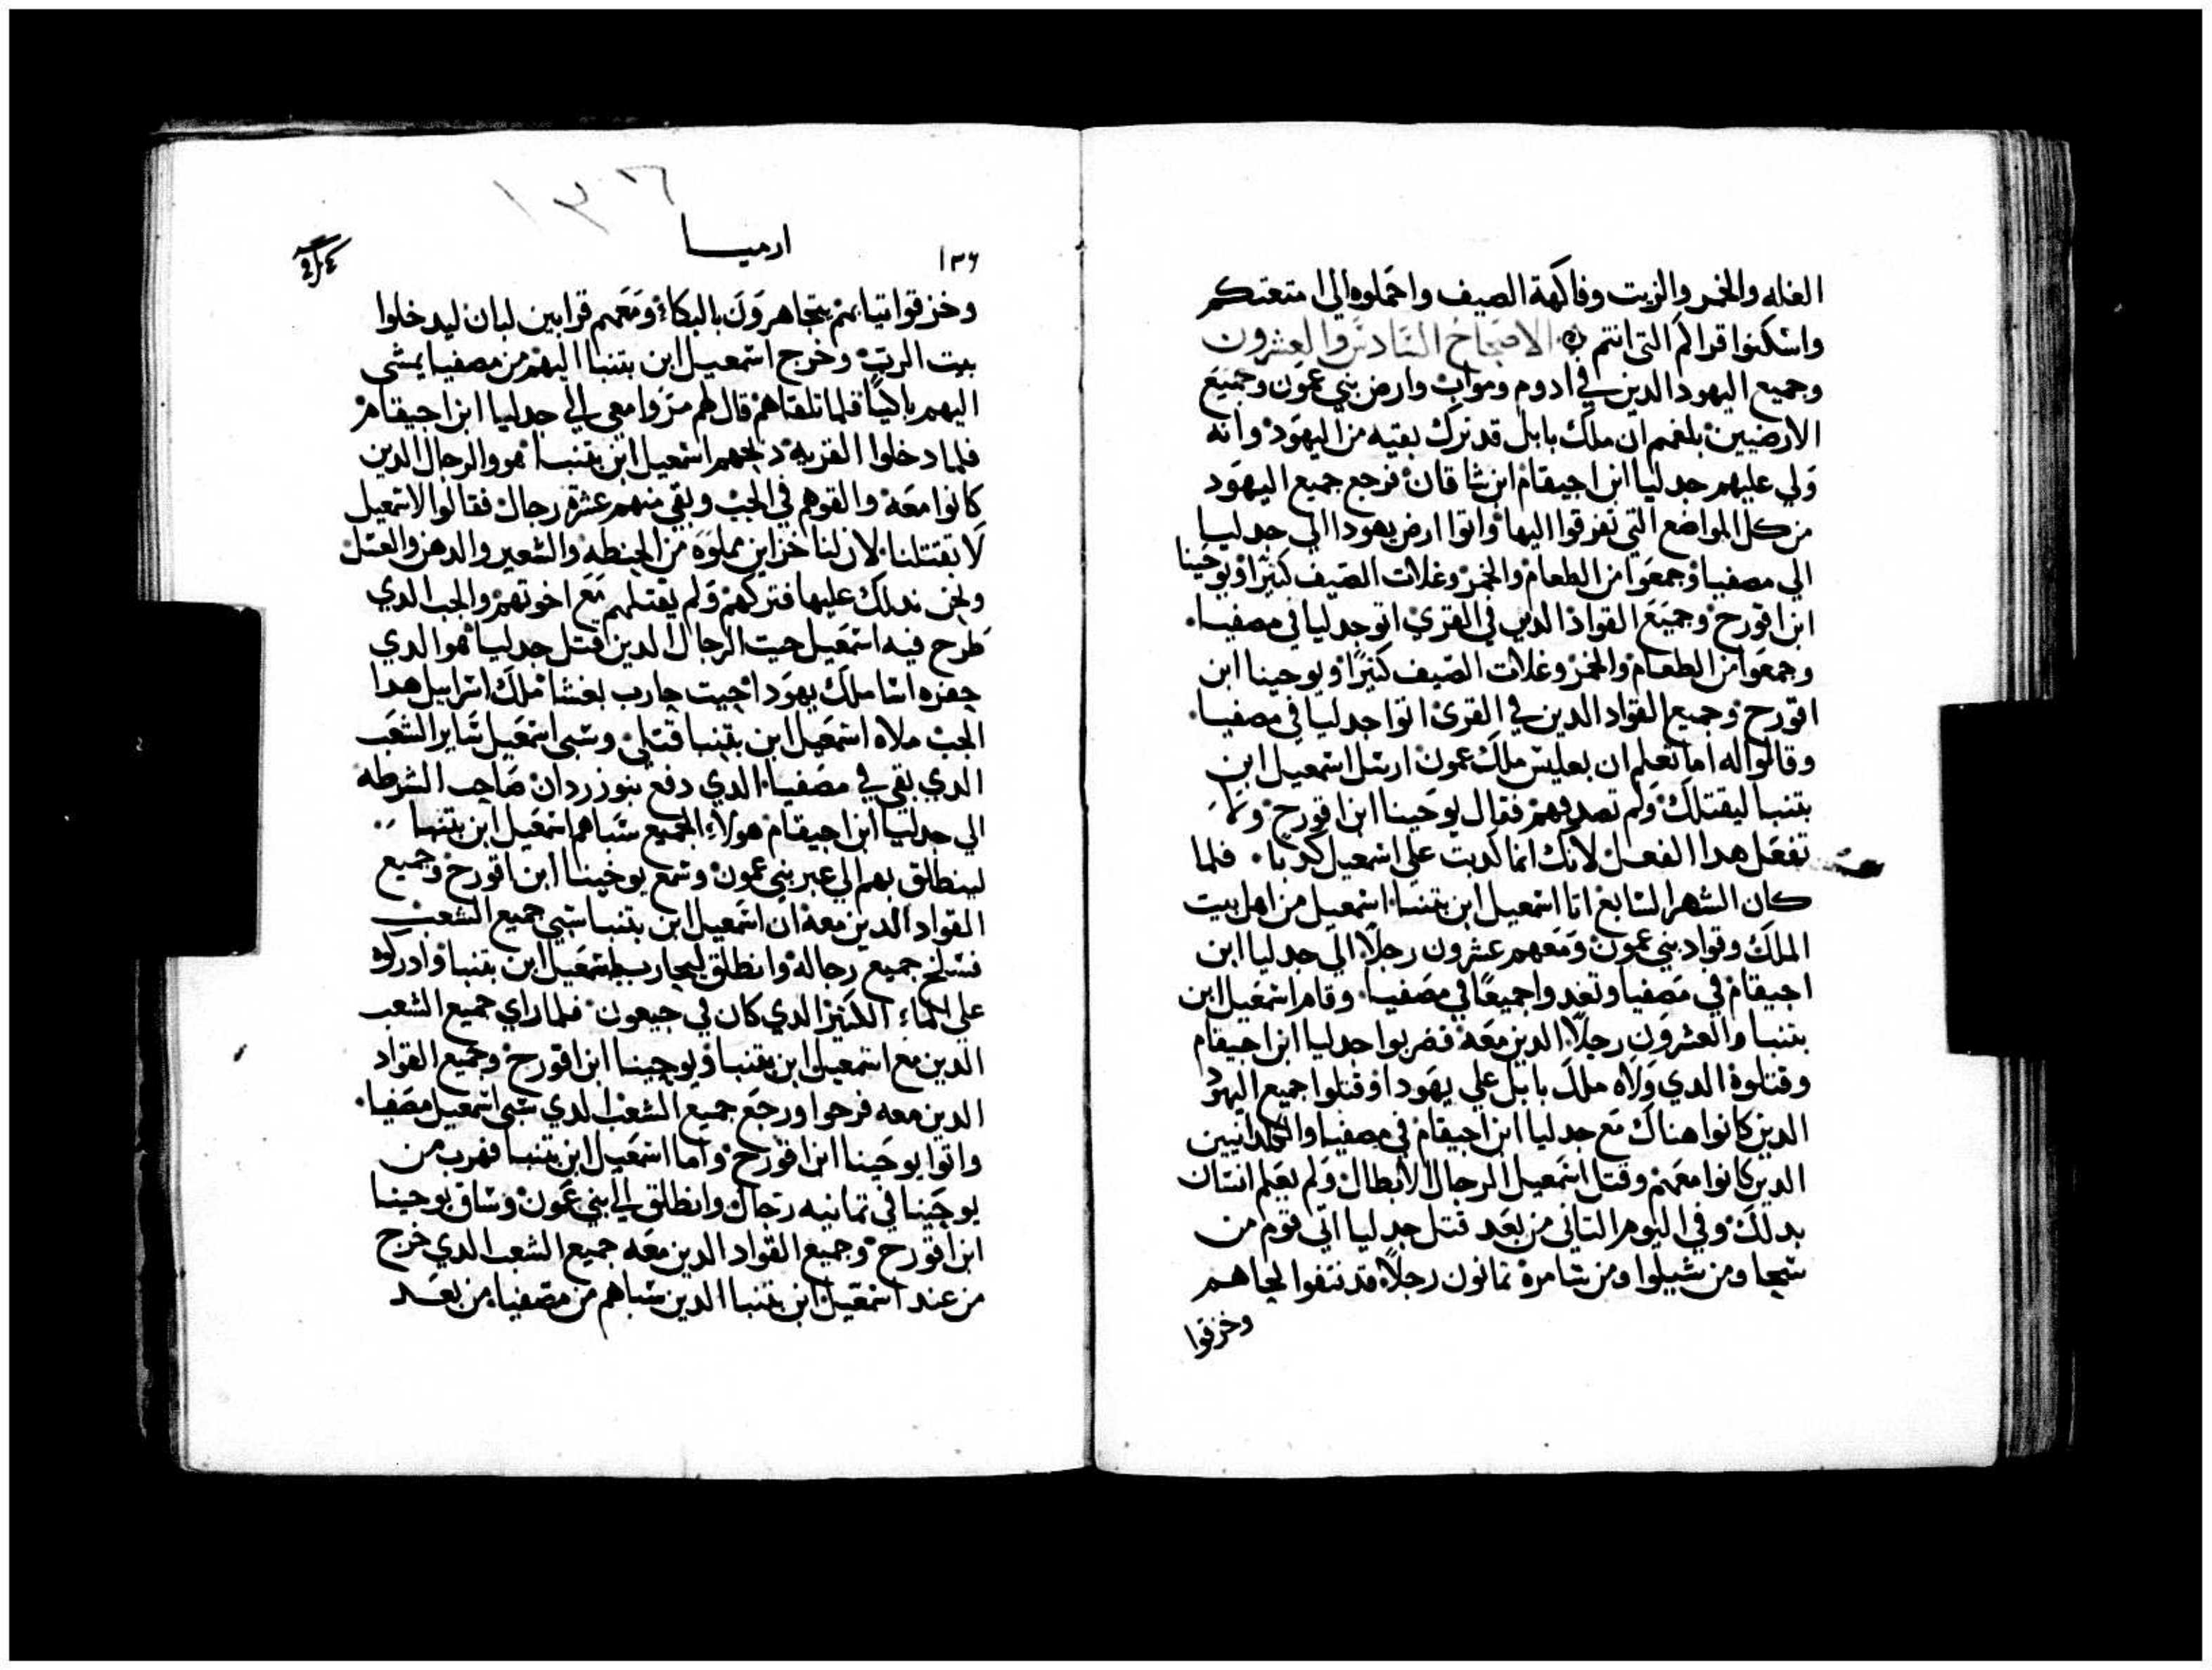 الغله والخمر والزيت وفاكهة الصيف واحملوه الى امتعتكم
واسكنوا قراكم التي انتم الاصحاح السادس والعشرون
وجميع اليهود الدين في ادوم ومواب وارض بني عمون وجميع
الارضيين بلغهم ان ملك بابل قد ترك بقيه من اليهود وانه
ولي عليهم جدليا ابن اجيقام ابن شاقان فرجع جميع اليهود
من كل المواضع التي تفرقوا اليها واتوا ارض يهودا الى جدليا
الى مصفيا وجمعوا من الطعام والخمر وغلات الصيف كثيرا ويوحينا
ابن اقورح وجميع القواد الدين في القرى اتو جدليا في مصفيا
وجمعوا من الطعام والخمر وغلات الصيف كثيرا ويوحينا ابن
اقورح وجميع القواد الدين في القرى اتوا جدليا في مصفيا
وقالوا له اما تعلم ان بعليس ملك عمون ارسل اسمعيل ابن
بتنيا ليقتلك ولم تصدقهم فقال يوحينا ابن اقورح ولا
تفعل هدا الفعل لانك انما كدبت على اسمعيل كدبا فلما
كان الشهر السابع اتا اسمعيل ابن بتنيا اسمعيل من اهل بيت
الملك وقواد بني عمون ومعهم عشرون رجلا الى جدليا ابن
اجيقام في مصفيا وتغدوا جميعا في مصفيا وقام اسمعيل ابن
بتنيا والعشرون رجلا الدين معه فضربوا جدليا ابن اجيقام
وقتلوه الدي ولاه ملك بابل على يهودا وقتلوا جميع اليهود
الدين كانوا هناك مع جدليا ابن اجيقام في مصفيا والكلدانيين
الدين كانوا معهم وقتل اسمعيل الرجال الابطال ولم يعلم انسان
بدلك وفي اليوم التاني من بعد قتل جدليا اتى قوم من
شيحا ومن شيلوا ومن شامرة تمانون رجلا قد نتفوا لحاهم
وخرقوا
١٣٦
ارميا
١٣٦
وخرقوا تيابهم يتجاهرون بالبكاء ومعهم قرابين لبان ليدخلوا
بيت الرب وخرج اسمعيل ابن بتنيا اليهم من مصفيا يمشى
اليهم باكيا فلما تلقاهم قال لهم مروا معي الى جدليا ابن اجيقام
فلما دخلوا القريه دبحهم اسمعيل ابن بتنيا هو والرجال الدين
كانوا معه والقوهم في الجب وبقي منهم عشرة رجال فقالوا لاسمعيل
لا تقتلنا لان لنا خزاين مملوه من الحنطه والشعير والدهن والعسل
ونحن ندلك عليها فتركهم ولم يقتلهم مع اخوتهم والجب الدي
طرح فيه اسمعيل جيت الرجال الدين قتل جدليا هو الدي
حفره اسا ملك يهودا حيت حارب بعشا ملك اسراييل هدا
الجب ملاه اسمعيل ابن بتنيا قتلى وسبى اسمعيل ساير الشعب
الدي بقي في مصفيا الدي دفع نبوزردان صاحب الشرطه
الى جدليا ابن اجيقام هولاء الجميع سباهم اسمعيل ابن بتنيا
لينطلق بهم الى عبر بني عمون وسمع يوحينا ابن اقورح وجميع
القواد الدين معه ان اسمعيل ابن بتنيا سبي جميع الشعب
فسلح جميع رجاله وانطلق ليحارب اسمعيل ابن بتنيا وادركوه
على الماء الكثير الدي كان في جبعون فلما راي جميع الشعب
الدين مع اسمعيل ابن بتنيا ويوحينا ابن اقورح وجميع القواد
الدين معه فرحوا ورجع جميع الشعب الدي سبى اسمعيل مصفيا
واتوا يوحينا ابن اقورح واما اسمعيل ابن بتنيا فهرب من
يوحينا في تمانيه رجال وانطلق الى بني عمون وساق يوحينا
ابن اقورح وجميع القواد الدين معه جميع الشعب الدي خرج
من عند اسمعيل ابن بتنيا الدين سباهم من مصفيا من بعد